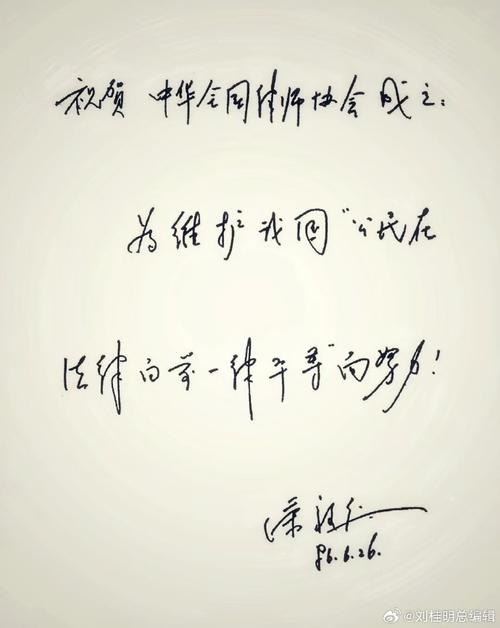 祝贺 中华全国律师协会成立:
为维护我国“公民在
法律面前一律平等”而努力!
86.6.26.
@刘桂明总编辑